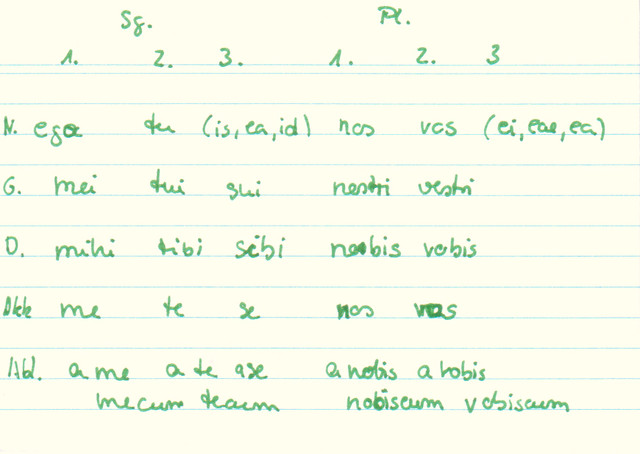 Sg. Pl.
1. 2. 3. 1. 2. 3
N. ego tu (is, ea, id) nos vos (ei, eae, ea)
G. mei tui sui nostri vestri
D. mihi tibi sibi nobis vobis
Akk me te se nos vos
Abl. a me a te a se a nobis a vobis
mecum tecum nobiscum vobiscum